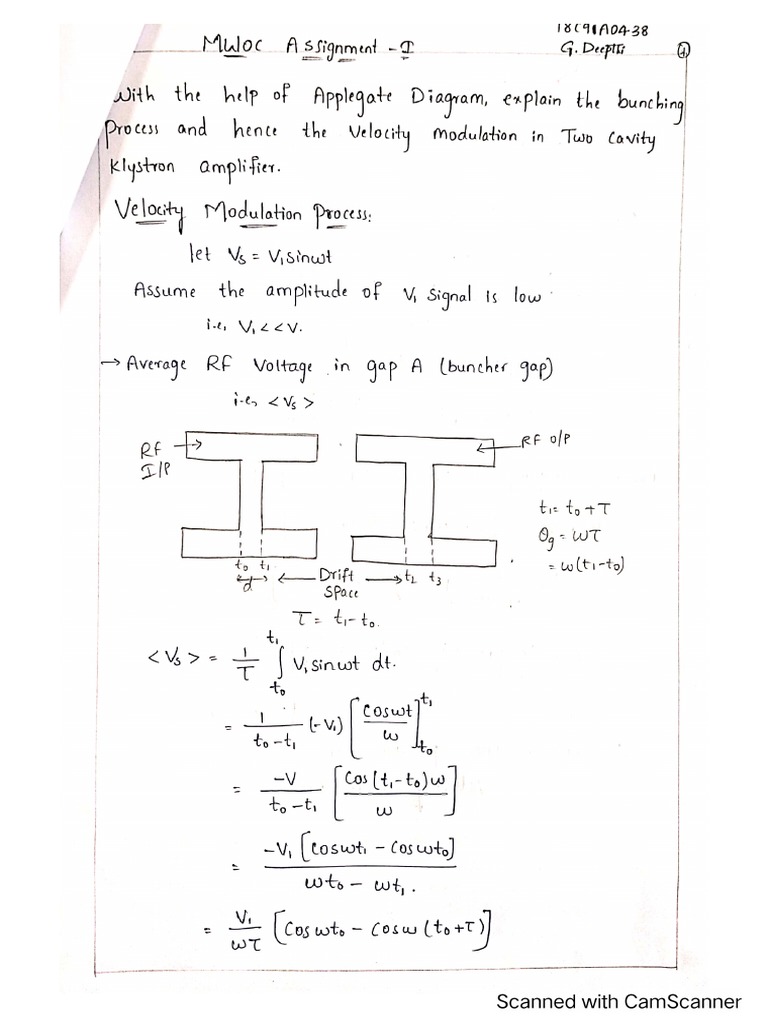 18C91A04-38
MWOC Assignment - I
G. Deepthi
1
With the help of Applegate Diagram, explain the bunching
Process and hence the Velocity modulation in Two Cavity
Klystron amplifier.
Velocity Modulation Process:
let Vs = V₁sinωt
Assume the amplitude of V₁ signal is low
i.e, V₁<<V.
→ Average RF Voltage in gap A (buncher gap)
i.e, <Vs>
RF I/P
RF O/P
t₁ = t₀ + τ
θg = ωτ
= ω(t₁-t₀)
t₀ t₁ t₂ t₃
d
Drift
Space
τ = t₁ - t₀.
<Vs> = 1/τ ∫t₀^t₁ V₁sinωt dt.
= 1/(t₀-t₁) (-V₁) [cosωt/ω]t₀^t₁
= -V/(t₀-t₁) [Cos(t₁-t₀)ω/ω]
= -V₁[cosωt₁ - cosωt₀]/(ωt₀ - ωt₁.)
= V₁/ωτ [cosωt₀ - cosω(t₀+τ)]
Scanned with CamScanner